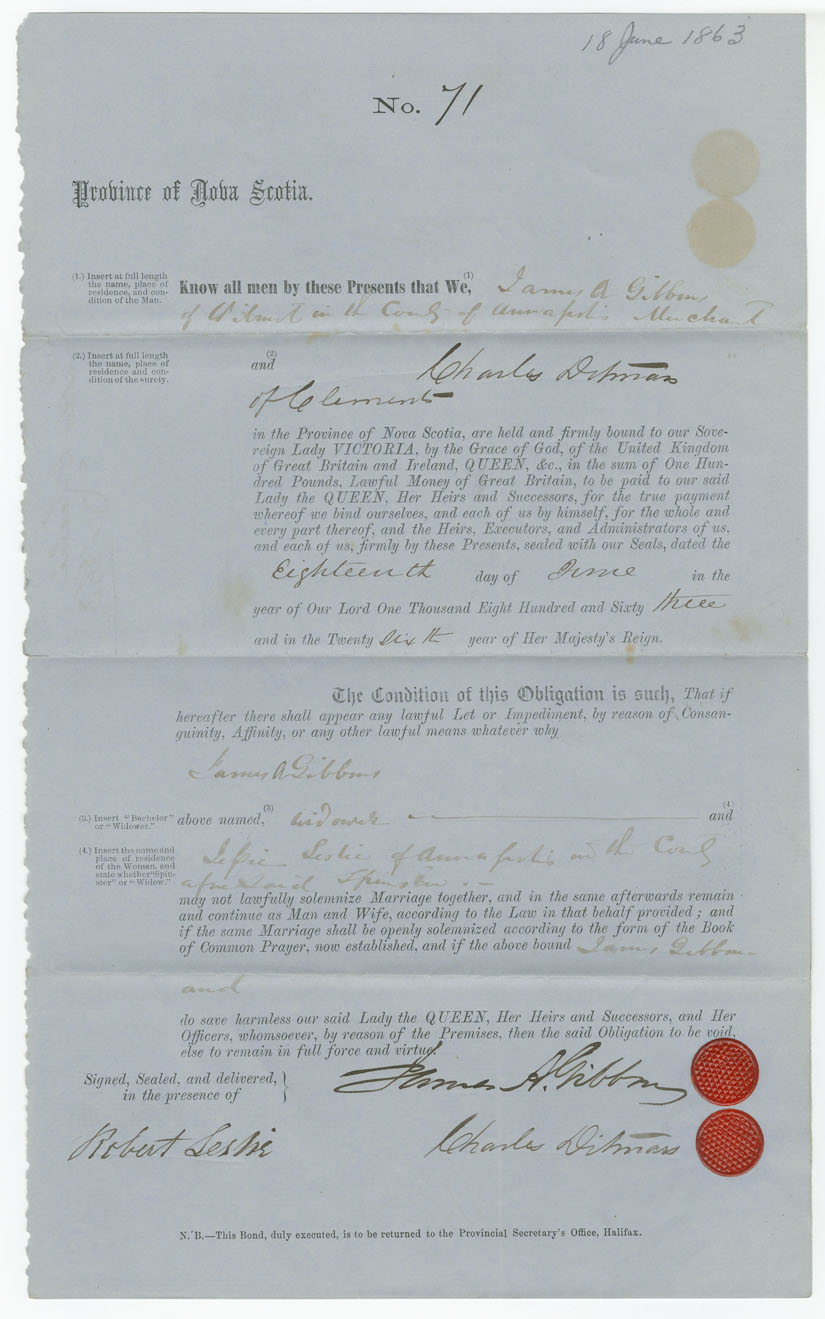 18 June 1863
No. 71
Province of Nova Scotia.
(1.) Insert at full length
the name, place of
residence, and con-
dition of the Man.
Know all men by these Presents that We, (1) James A Gibbons
of Wilmot in the County of Annapolis Merchant
(2.) Insert at full length
the name, place of
residence and con-
dition of the surety.
and (2) Charles Ditmars
of Clements
in the Province of Nova Scotia, are held and firmly bound to our Sove-
reign Lady VICTORIA, by the Grace of God, of the United Kingdom
of Great Britain and Ireland, QUEEN, &c., in the sum of One Hun-
dred Pounds, Lawful Money of Great Britain, to be paid to our said
Lady the QUEEN, Her Heirs and Successors, for the true payment
whereof we bind ourselves, and each of us by himself, for the whole and
every part thereof, and the Heirs, Executors, and Administrators of us,
and each of us, firmly by these Presents, sealed with our Seals, dated the
Eighteenth day of June in the
year of Our Lord One Thousand Eight Hundred and Sixty three
and in the Twenty sixth year of Her Majesty's Reign.
The Condition of this Obligation is such, That if
hereafter there shall appear any lawful Let or Impediment, by reason of Consan-
guinity, Affinity, or any other lawful means whatever why
James A Gibbons
(3.) Insert "Bachelor"
or "Widower."
above named, (3) widower (4) and
(4.) Insert the name and
place of residence
of the Woman, and
state whether "Spin-
ster" or "Widow."
Jessie Leslie of Annapolis in the County
aforesaid Spinster
may not lawfully solemnize Marriage together, and in the same afterwards remain
and continue as Man and Wife, according to the Law in that behalf provided ; and
if the same Marriage shall be openly solemnized according to the form of the Book
of Common Prayer, now established, and if the above bound James Gibbons
and
do save harmless our said Lady the QUEEN, Her Heirs and Successors, and Her
Officers, whomsoever, by reason of the Premises, then the said Obligation to be void,
else to remain in full force and virtue.
Signed, Sealed, and delivered,
in the presence of
James A. Gibbons
Robert Leslie
Charles Ditmars
N. B.—This Bond, duly executed, is to be returned to the Provincial Secretary's Office, Halifax.